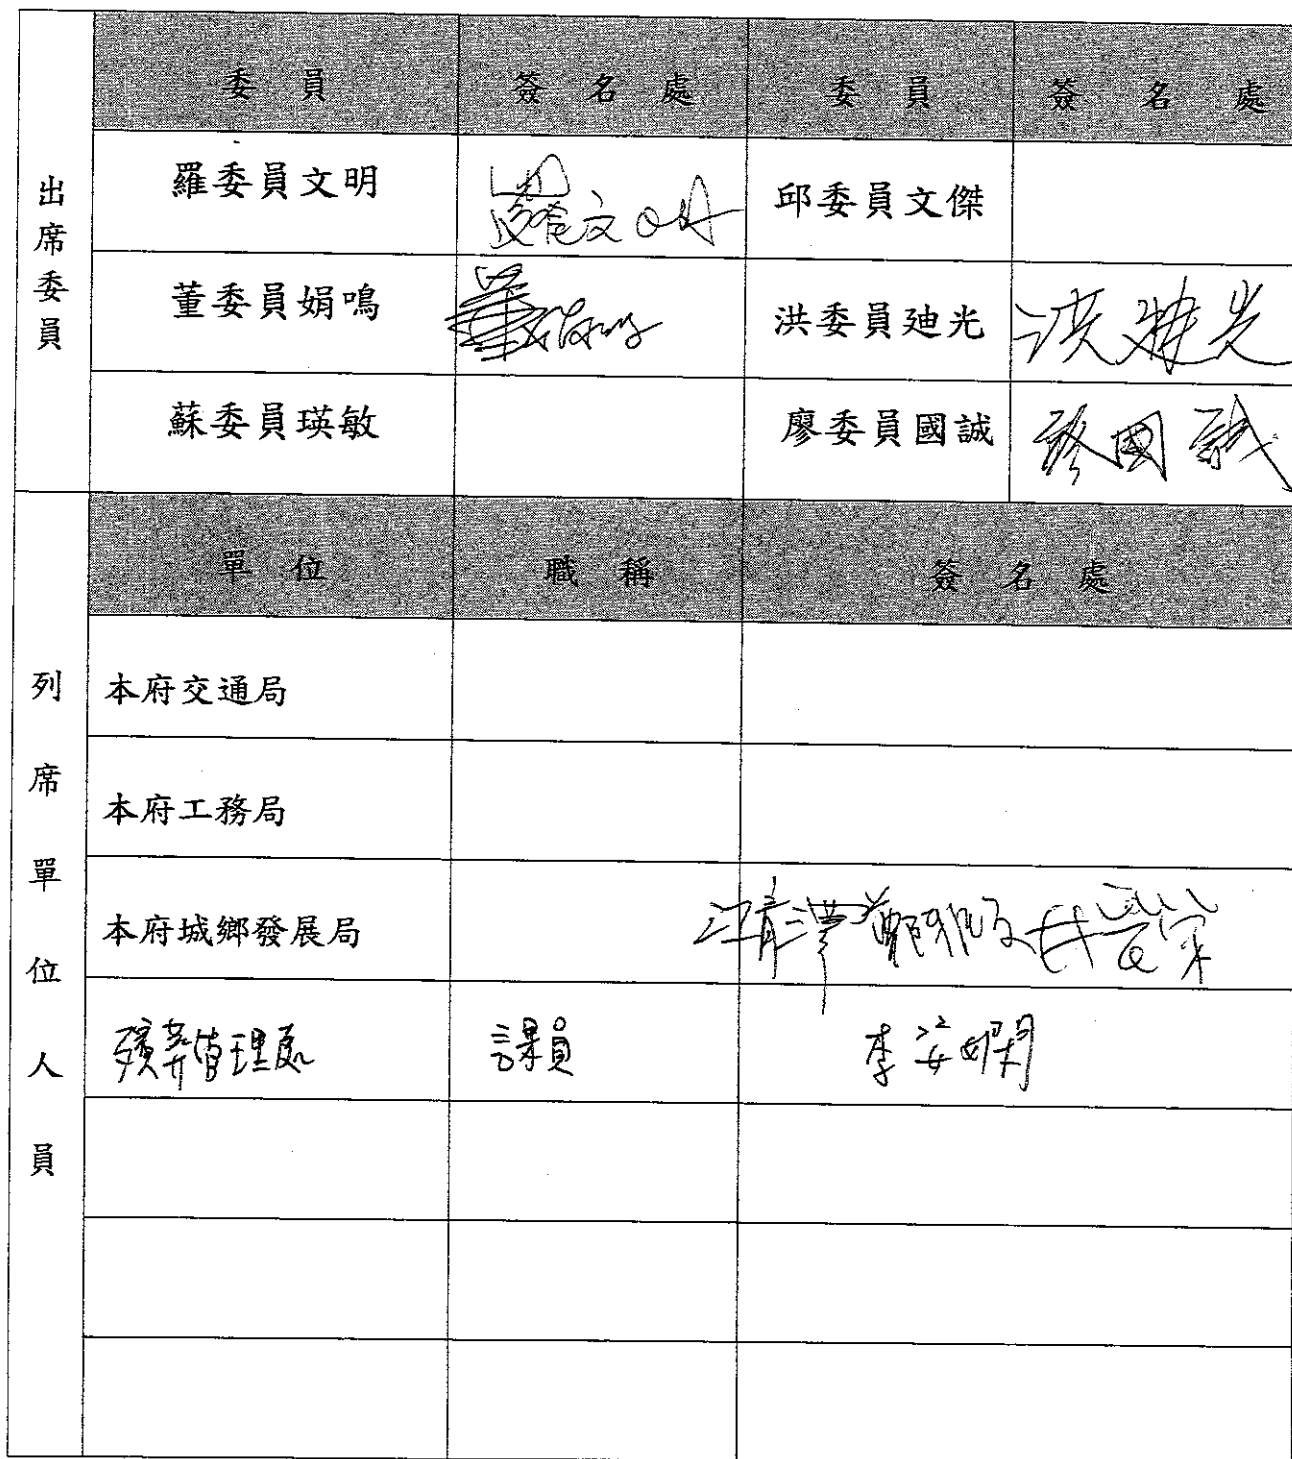 出席委員
委員 簽名處 委員 簽名處
羅委員文明 羅文明 邱委員文傑
董委員娟鳴 董娟鳴 洪委員廸光 洪廸光
蘇委員瑛敏 廖委員國誠 廖國誠
列席單位人員
單位 職稱 簽名處
本府交通局
本府工務局
本府城鄉發展局
殯葬管理處 課員 李姿嫻